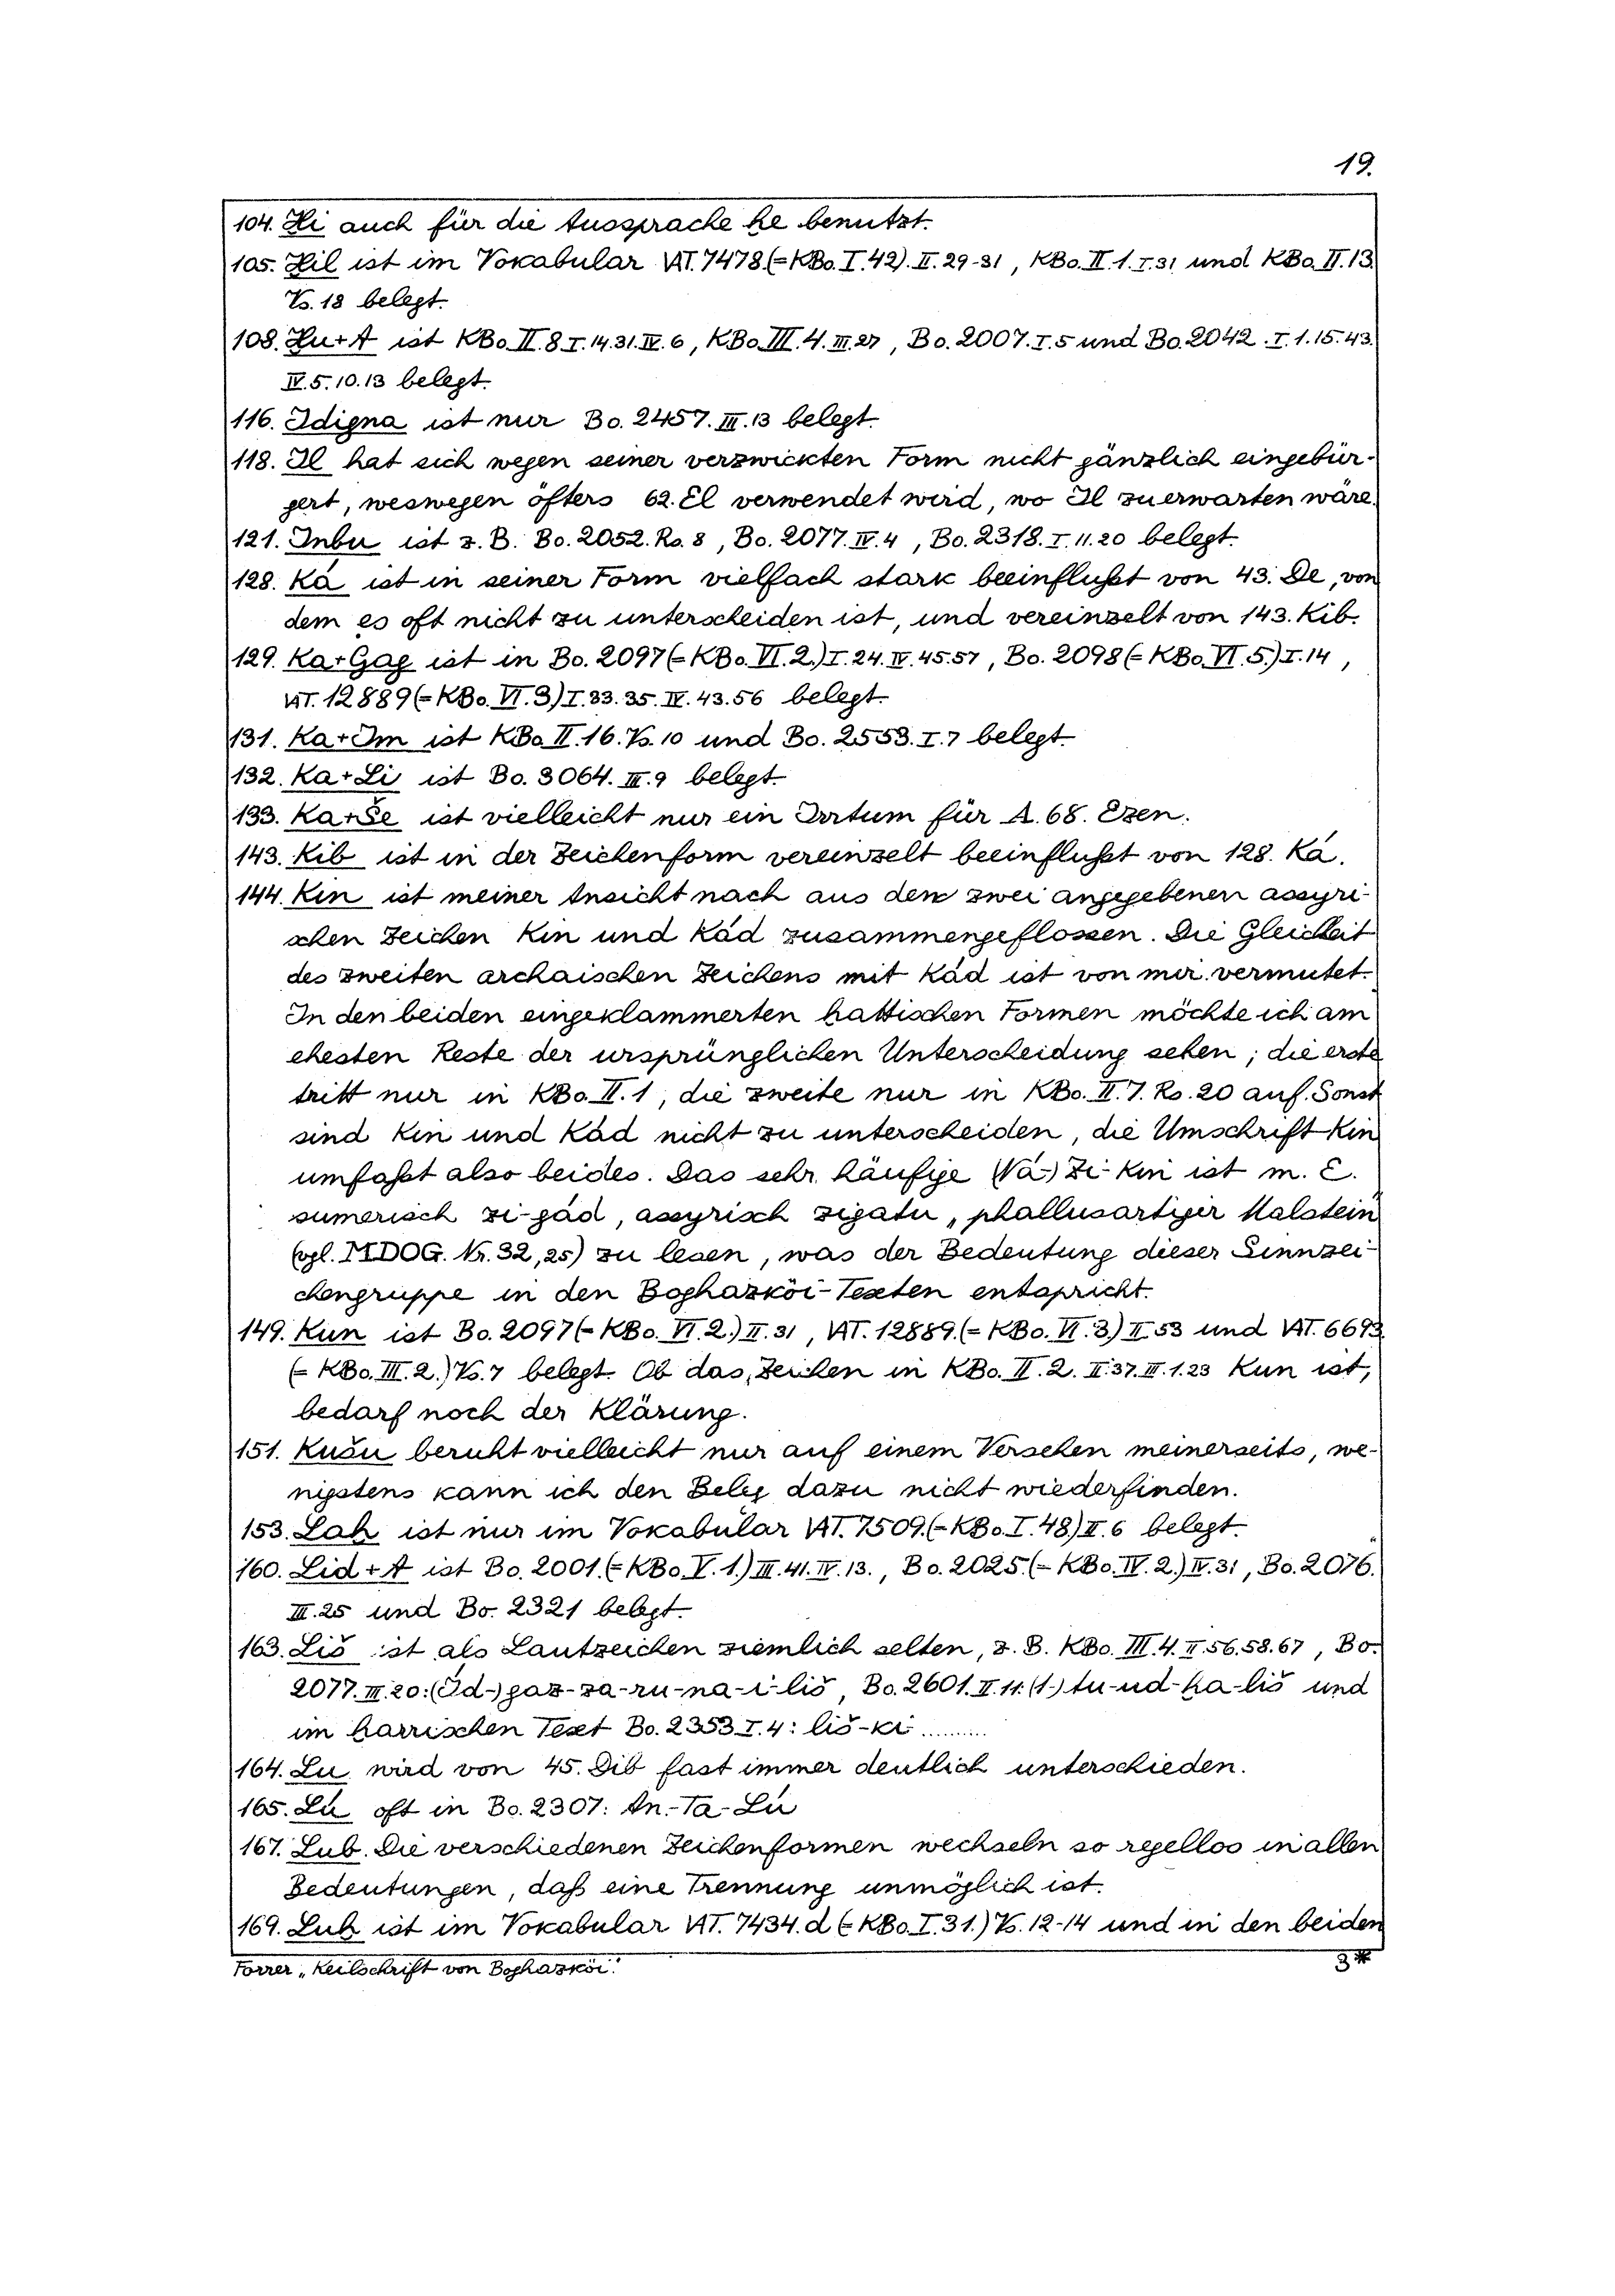 19.
104. Ḫi auch für die Aussprache ḫe benutzt.
105. Ḫil ist im Vokabular VAT. 7478 (= KBo. I. 42). II. 29-31, KBo. II. 1. I. 31 und KBo. II. 13
Vs. 18 belegt.
108. Ḫu+A ist KBo. II. 8 I. 14. 31. IV. 6, KBo. III. 4. III. 27, Bo. 2007. I. 5 und Bo. 2042. I. 1. 15. 43.
IV. 5. 10. 13 belegt.
116. Idigna ist nur Bo. 2457. III. 13 belegt.
118. Il hat sich wegen seiner verzwickten Form nicht gänzlich eingebür-
gert, weswegen öfters 62. El verwendet wird, wo Il zu erwarten wäre.
121. Inbu ist z. B. Bo. 2052. Rs. 8, Bo. 2077. IV. 4, Bo. 2318. I. 11. 20 belegt.
128. Ká ist in seiner Form vielfach stark beeinflußt von 43. De, von
dem es oft nicht zu unterscheiden ist, und vereinzelt von 143. Kib.
129. Ka+Gag ist in Bo. 2097 (= KBo. VI. 2.) I. 24. IV. 45. 57, Bo. 2098 (= KBo. VI. 5.) I. 14,
VAT. 12889 (= KBo. VI. 3) I. 33. 35. IV. 43. 56 belegt.
131. Ka+Im ist KBo II. 16. Vs. 10 und Bo. 2553. I. 7 belegt.
132. Ka+Li ist Bo. 3064. III. 9 belegt.
133. Ka+Še ist vielleicht nur ein Irrtum für A. 68. Ezen.
143. Kib ist in der Zeichenform vereinzelt beeinflußt von 128. Ká.
144. Kin ist meiner Ansicht nach aus den zwei angegebenen assyri-
schen Zeichen Kin und Kád zusammengeflossen. Die Gleichheit
des zweiten archaischen Zeichens mit Kád ist von mir vermutet.
In den beiden eingeklammerten hattischen Formen möchte ich am
ehesten Reste der ursprünglichen Unterscheidung sehen; die erste
tritt nur in KBo. II. 1, die zweite nur in KBo. II. 7. Rs. 20 auf. Sonst
sind Kin und Kád nicht zu unterscheiden, die Umschrift Kin
umfaßt also beides. Das sehr häufige (Ná-) Zi-Kin ist m. E.
sumerisch zi-gád, assyrisch zigatu „phallusartiger Malstein“
(vgl. MDOG. Nr. 32, 25) zu lesen, was der Bedeutung dieser Sinnzei-
chengruppe in den Boghazköi-Texten entspricht.
149. Kun ist Bo. 2097 (= KBo. VI. 2.) II. 31, VAT. 12889. (= KBo. VI. 3.) II. 53 und VAT. 6693
(= KBo. III. 2.) Vs. 7 belegt. Ob das Zeichen in KBo. II. 2. II. 37. III. 1. 23 Kun ist,
bedarf noch der Klärung.
151. Kušu beruht vielleicht nur auf einem Versehen meinerseits, we-
nigstens kann ich den Beleg dazu nicht wiederfinden.
153. Laḫ ist nur im Vokabular VAT. 7509. (= KBo. I. 48) II. 6 belegt.
160. Lid+A ist Bo. 2001. (= KBo. V. 1.) III. 41. IV. 13., Bo. 2025. (= KBo. IV. 2.) IV. 31, Bo. 2076.
III. 25 und Bo. 2321 belegt.
163. Liš ist als Lautzeichen ziemlich selten, z. B. KBo. III. 4. II. 56. 58. 67, Bo.
2077. III. 20: (Íd-) gaz-za-ru-na-i-liš, Bo. 2601. II. 11: (1-) tu-ud-ḫa-liš und
im harrischen Text Bo. 2353 I. 4: liš-ki .........
164. Lu wird von 45. Dib fast immer deutlich unterschieden.
165. Lú oft in Bo. 2307: An.-Ta-Lú
167. Lub. Die verschiedenen Zeichenformen wechseln so regellos in allen
Bedeutungen, daß eine Trennung unmöglich ist.
169. Luḫ ist im Vokabular VAT. 7434. d (= KBo. I. 31.) Vs. 12-14 und in den beiden
Forrer „Keilschrift von Boghazköi“.
3*